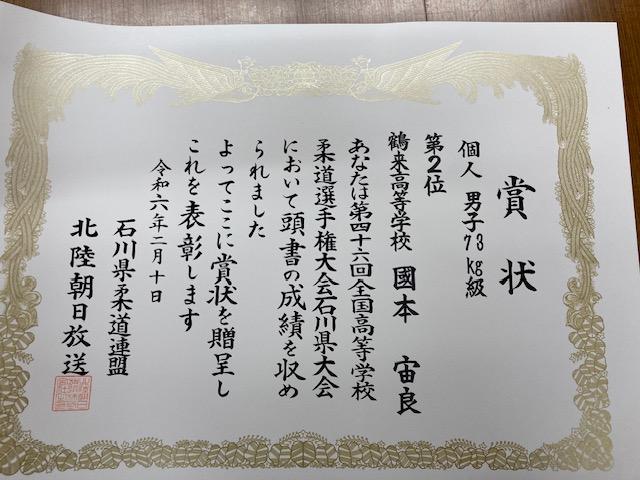 賞状
個人 男子73kg級
第2位
鶴来高等学校 國本 宙良
あなたは第四十六回全国高等学校
柔道選手権大会石川県大会
において頭書の成績を収め
られました
よってここに賞状を贈呈し
これを表彰します
令和六年二月十日
石川県柔道連盟
北陸朝日放送